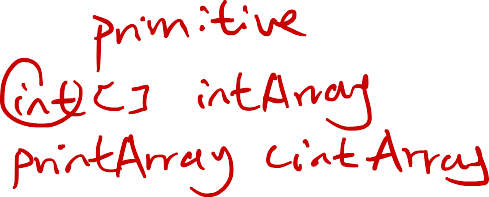 primitive
int[] intArray
printArray (intArray